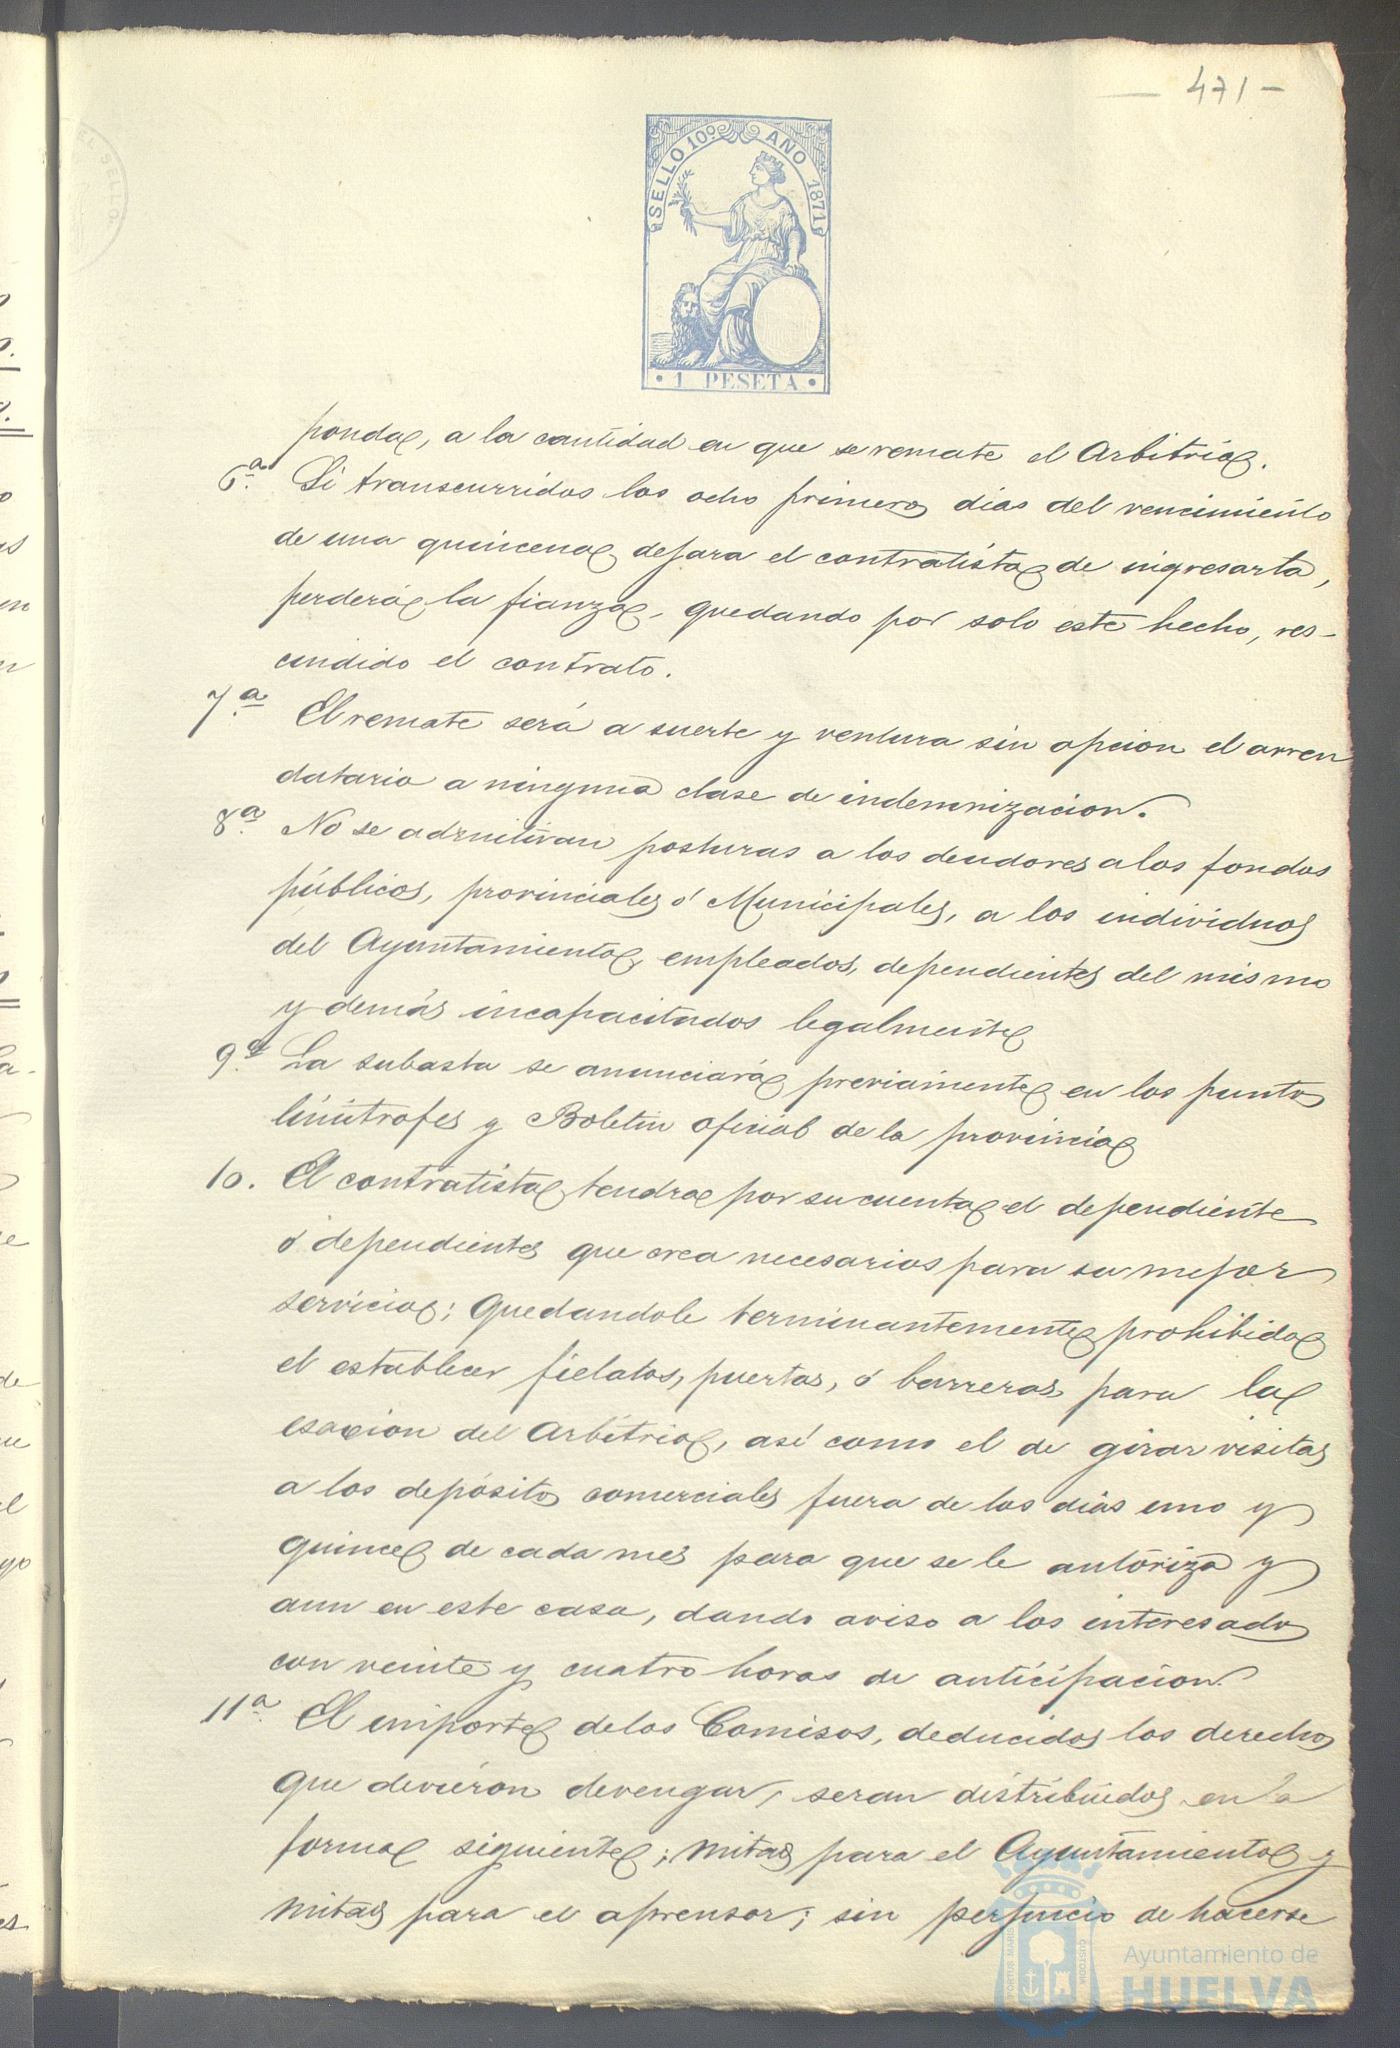 — 471 —
SELLO 10º AÑO 1871
• 1 PESETA •
ponda, a la cantidad en que se remate el Arbitrio.
6.ª Si transcurridos los ocho primeros dias del vencimiento
de una quincena dejara el contratista de ingresarla,
perderá la fianza, quedando por solo este hecho, res-
cindido el contrato.
7.ª El remate será a suerte y ventura sin opcion el arren
datario a ninguna clase de indemnizacion.
8.ª No se admitiran posturas a los deudores a los fondos
públicos, provinciales ó Municipales, a los individuos
del Ayuntamiento, empleados, dependientes del mismo
y demás incapacitados legalmente
9.ª La subasta se anunciará previamente en los puntos
limitrofes y Boletin oficial de la provincia
10. El contratista tendra por su cuenta el dependiente
ó dependientes que crea necesarios para su mejor
servicio; quedandole terminantemente prohibido
el establecer fielatos, puertas, ó barreras para la
esaccion del Arbitrio, asi como el de girar visitas
a los depósitos comerciales fuera de los dias uno y
quince de cada mes para que se le autoriza y
aun en este caso, dando aviso a los interesados
con veinte y cuatro horas de anticipacion.
11.ª El importe de los Comisos, deducidos los derechos
que devieron devengar, seran distribuidos en la
forma siguiente; mitad para el Ayuntamiento y
mitad para el aprensor; sin perjuicio de hacerse
Ayuntamiento de
HUELVA